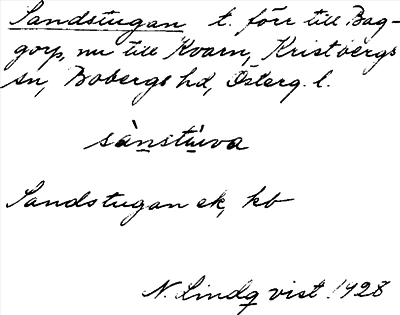 Sandstugan t. förr till Bag-
gorp, nu till Kvarn, Kristbergs
sn, Bobergs hd, Österg. l.
sànstùwa
Sandstugan ek, kb
N. Lindqvist 1928